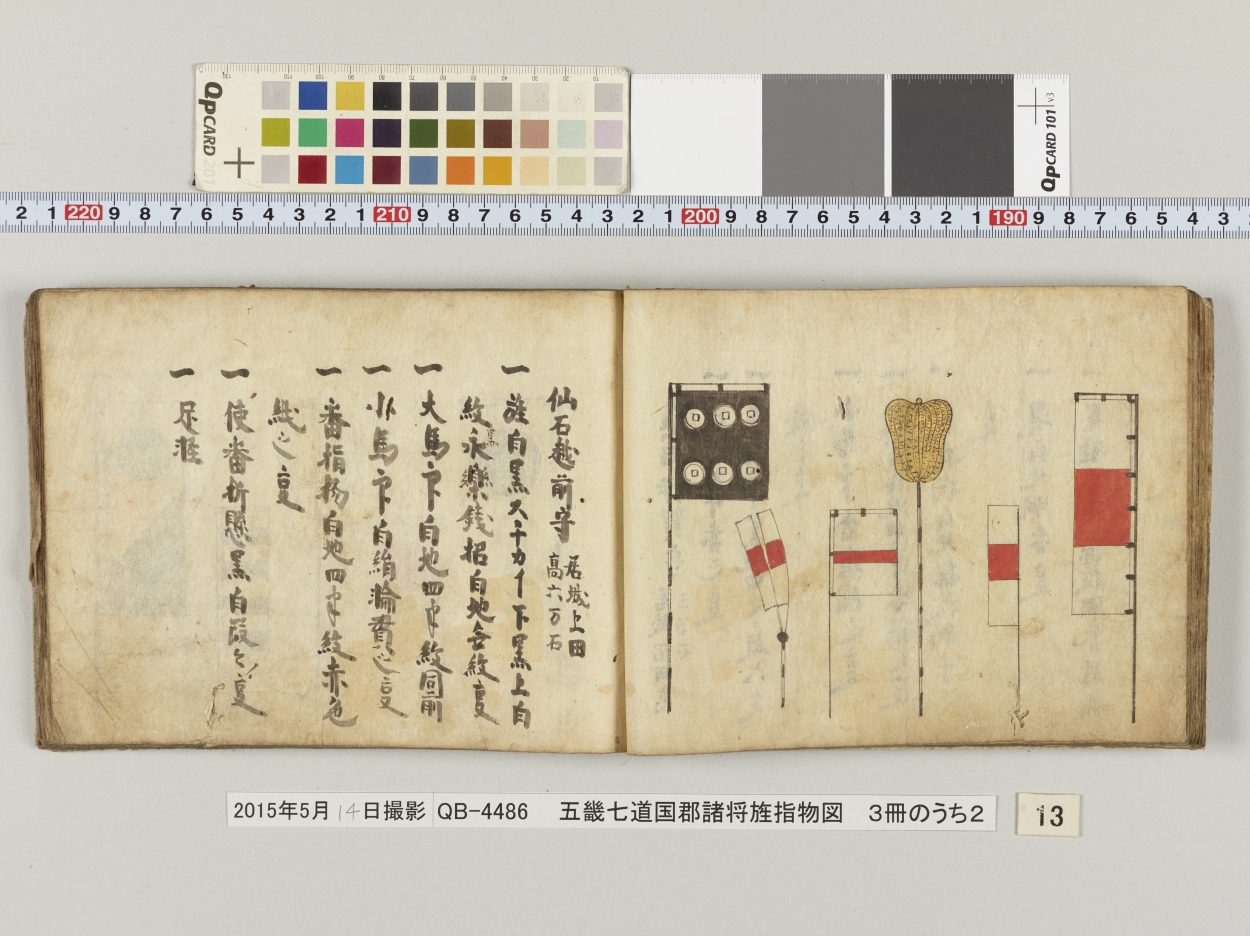 QpCARD 201
QpCARD 101 v3
2 1 220 9 8 7 6 5 4 3 2 1 210 9 8 7 6 5 4 3 2 1 200 9 8 7 6 5 4 3 2 1 190 9 8 7 6 5 4 3
仙石越前守
居城上田
高六万石
一 旌白黒スチカイ下黒上白
紋永楽銭招白地無紋之
一 大馬印白地四半紋同前
一 小馬印白絹
一 番指物白地四半紋赤色
一 使番折懸黒白段々
一 足軽
2015年5月14日撮影 QB-4486 五畿七道国郡諸将旌指物図 3冊のうち2
13